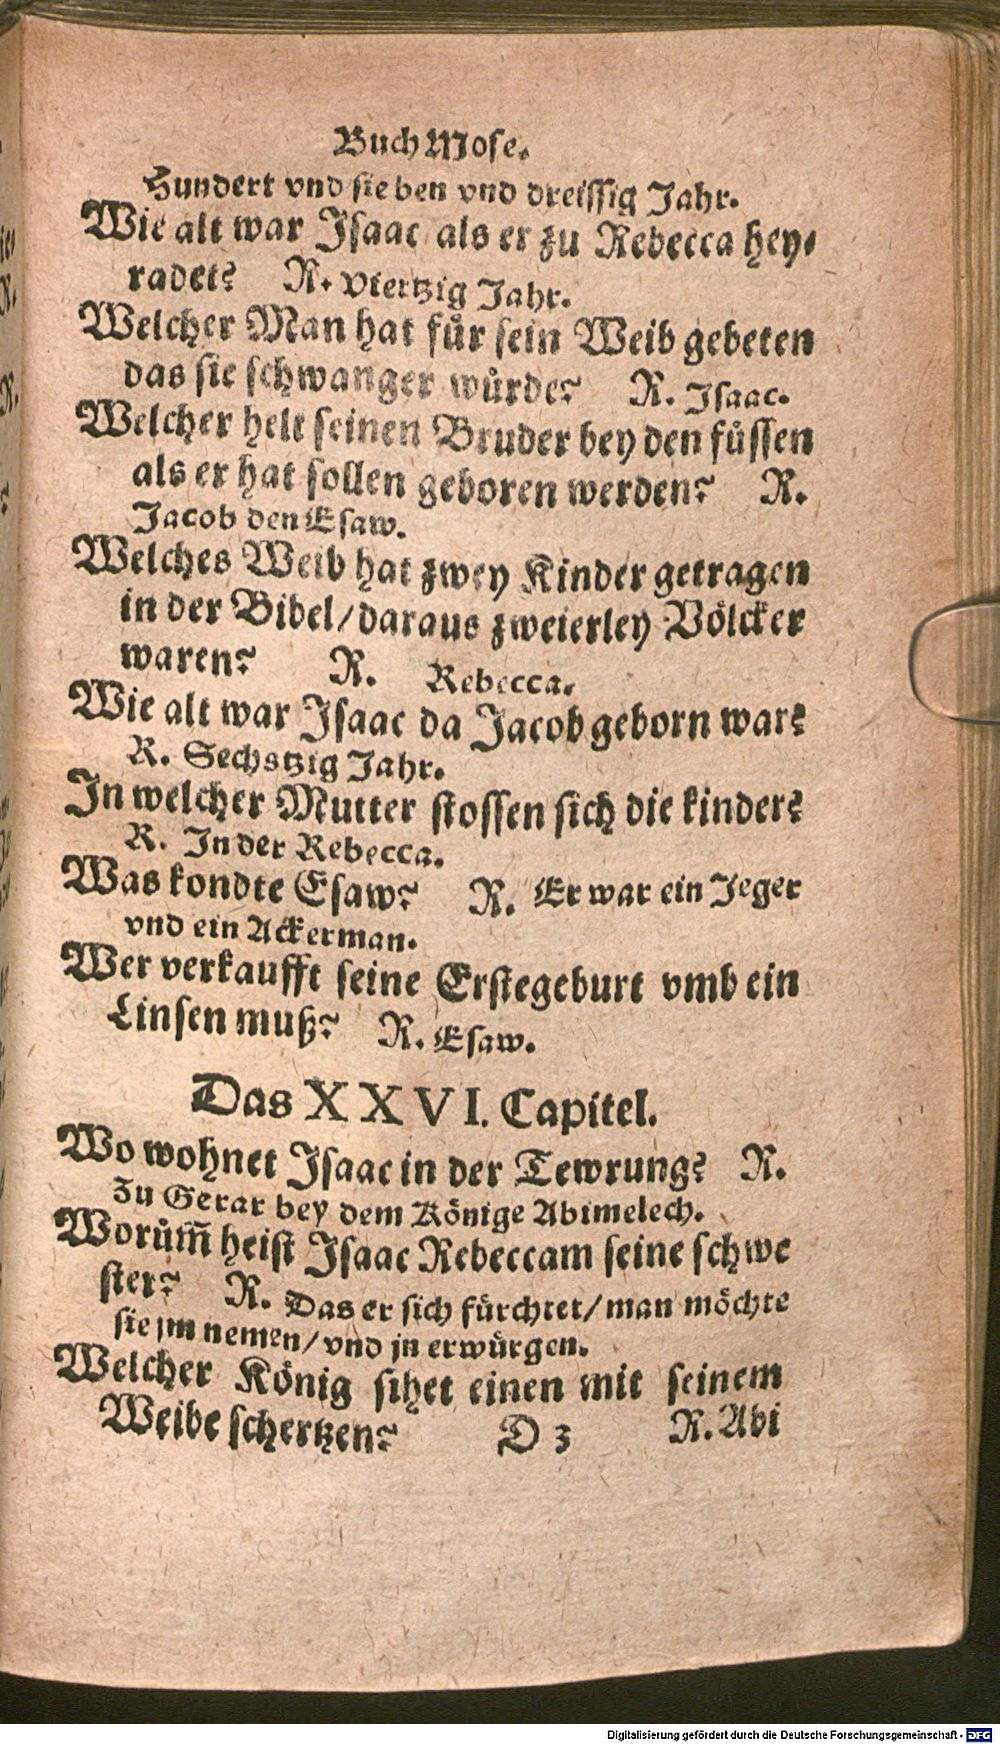 Buch Mose.
Hundert vnd sieben vnd dreissig Jahr.
Wie alt war Isaac als er zu Rebecca hey-
radet? R. Viertzig Jahr.
Welcher Man hat fůr sein Weib gebeten
das sie schwanger wůrde? R. Isaac.
Welcher helt seinen Bruder bey den fůssen
als er hat sollen geboren werden? R.
Jacob den Esaw.
Welches Weib hat zwey Kinder getragen
in der Bibel/daraus zweierley Völcker
waren? R. Rebecca.
Wie alt war Isaac da Jacob geborn war?
R. Sechstzig Jahr.
In welcher Mutter stossen sich die kinder?
R. In der Rebecca.
Was kondte Esaw? R. Er war ein Jeger
vnd ein Ackerman.
Wer verkaufft seine Erstegeburt vmb ein
Linsen muß? R. Esaw.
Das XXVI. Capitel.
Wo wohnet Isaac in der Tewrung? R.
Zu Gerar bey dem Könige Abimelech.
Worům̃ heist Isaac Rebeccam seine schwe
ster? R. Das er sich fůrchtet/man möchte
sie jm nemen/vnd jn erwůrgen.
Welcher König sihet einen mit seinem
Weibe schertzen? D 3 R. Abi
Digitalisierung gefördert durch die Deutsche Forschungsgemeinschaft - DFG